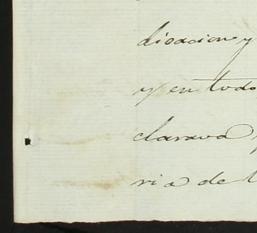 dicacion y
y en todo
clarava
ria de l